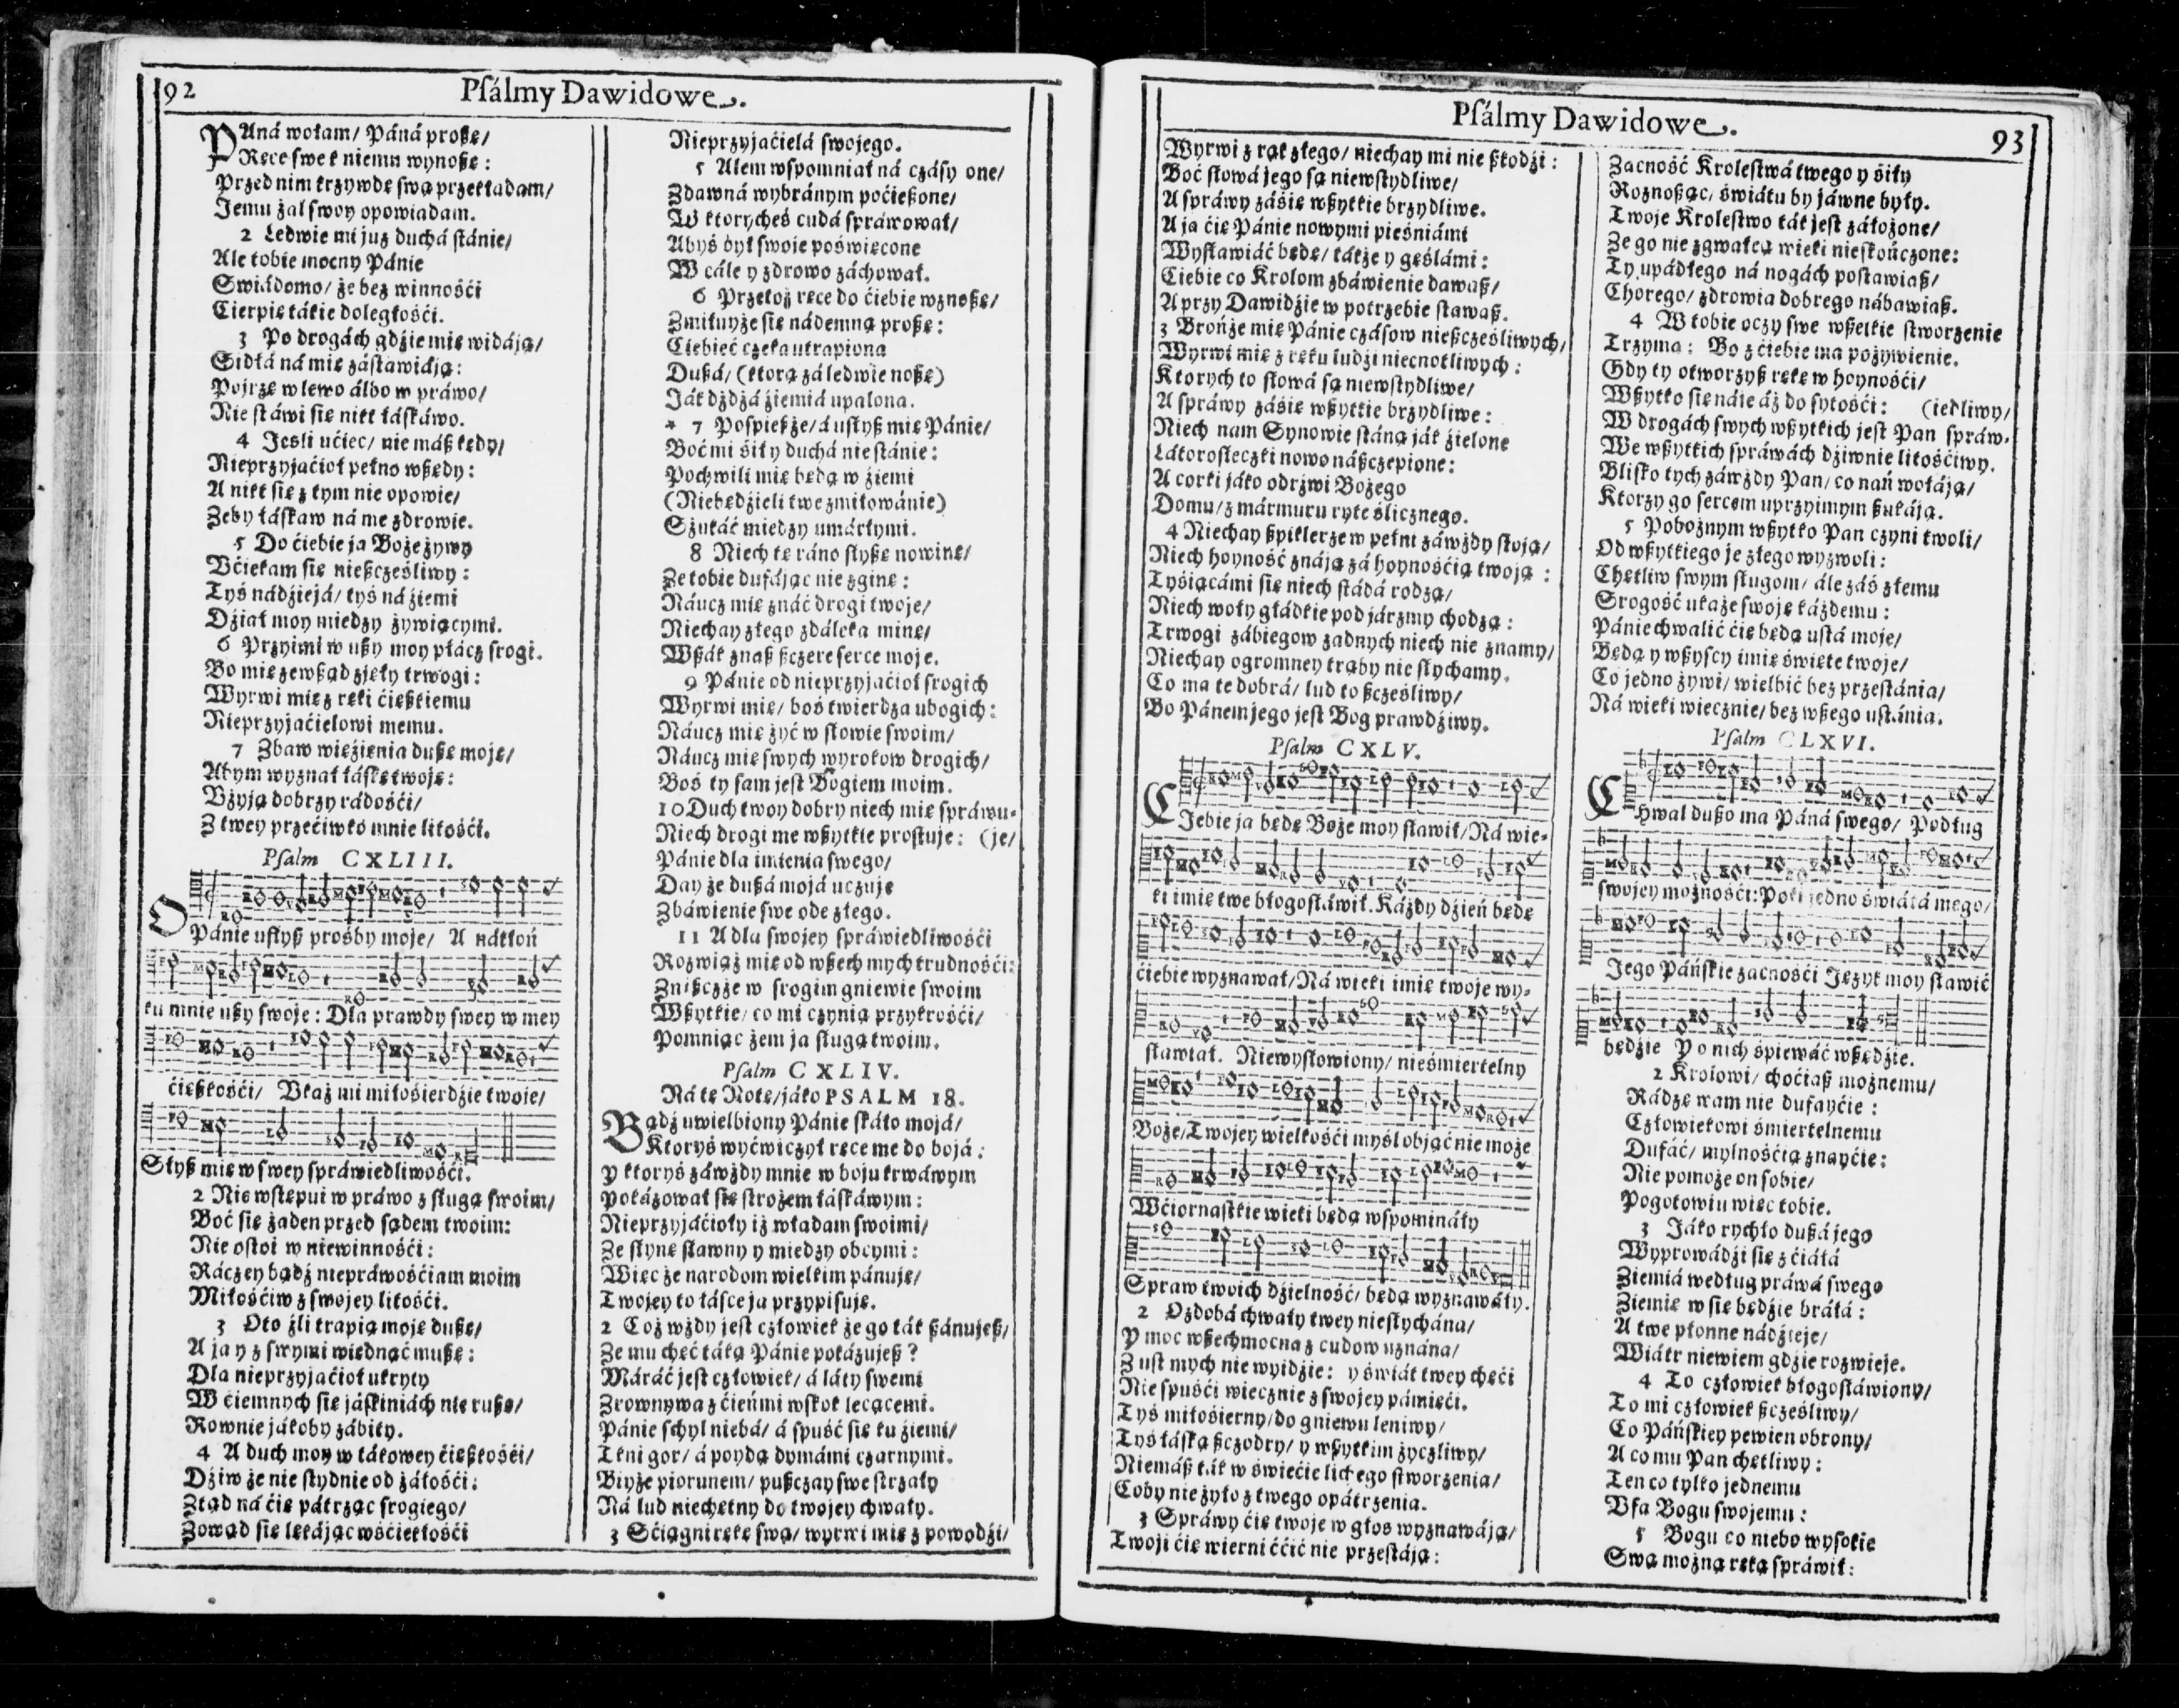 92
Psálmy Dawidowe.
PAná wołam/ Páná proßę/
Ręce swe k niemu wynoßę:
Przed nim krzywdę swą przekładam/
Jemu żal swoy opowiadam.
2 Ledwie mi juz duchá stánie/
Ale tobie mocny Pánie
Swiádomo/ że bez winnośći
Cierpię tákie doległośći.
3 Po drogách gdźie mię widáją/
Sidłá ná mię zástawiáją:
Pojrzę w lewo álbo w práwo/
Nie stáwi się nikt łáskáwo.
4 Jesli ućiec/ nie máß kędy/
Nieprzyjaćioł pełno wßędy:
A nikt się z tym nie opowie/
Zeby łáskaw ná me zdrowie.
5 Do ćiebie ja Boże żywy
Vćiekam się nießczęśliwy:
Tyś nádźiejá/ tyś ná źiemi
Dźiał moy miedzy żywiącymi.
6 Przyimi w ußy moy płácz srogi.
Bo mię zewßąd zjęły trwogi:
Wyrwi mię z ręki ćięßkiemu
Nieprzyjaćielowi memu.
7 Zbaw więźienia dußę moję/
Abym wyznał łáskę twoję:
Vżyją dobrzy rádośći/
Z twey przećiwko mnie litośći.
Psalm CXLIII.
O Pánie usłyß prośby moje/ A nákłoń
ku mnie ußy swoje: Dla prawdy swey w mey
ćięßkośći/ Vkaż mi miłośierdźie twoje/
Słyß mię w swey spráwiedliwośći.
2 Nie wstępui w práwo z sługą swoim/
Boć się żaden przed sądem twoim:
Nie ostoi w niewinnośći:
Ráczey bądź niepráwośćiam moim
Miłośćiw z swojey litośći.
3 Oto źli trapią moję dußę/
A ja y z swymi więdnąć mußę:
Dla nieprzyjaćioł ukryty
W ćiemnych się jáskiniách nie rußę/
Rownie jákoby zábity.
4 A duch moy w tákowey ćięßkośći/
Dźiw że nie stydnie od żáłośći:
Ztąd ná ćię pátrząc srogiego/
Zowąd się lękájąc wśćiekłośći
Nieprzyjaćielá swojego.
5 Alem wspomniał ná czásy one/
Zdawná wybránym poćießone/
W ktorycheś cudá spráwował/
Abyś był swoje poświęcone
W cále y zdrowo záchował.
6 Przetoż ręce do ćiebie wznoßę/
Zmiłuyże się nádemną proßę:
Ciebieć czeka utrapiona
Dußá/ (ktorą záledwie noßę)
Ják dżdżá źiemiá upalona.
* 7 Pospießże/ á usłyß mię Pánie/
Boć mi śiły duchá nie stánie:
Pochwili mię będą w źiemi
(Niebędźieli twe zmiłowánie)
Szukáć miedzy umárłymi.
8 Niech tę ráno słyßę nowinę/
Ze tobie dufájąc nie zginę:
Náucz mię znáć drogi twoje/
Niechay złego zdáleka minę/
Wßák znaß ßczere serce moje.
9 Pánie od nieprzyjaćioł srogich
Wyrwi mię/ boś twierdza ubogich:
Náucz mię żyć w słowie swoim/
Náucz mię swych wyrokow drogich/
Boś ty sam jest Bogiem moim.
10 Duch twoy dobry niech mię spráwu-
Niech drogi me wßytkie prostuje: (je/
Pánie dla imienia swego/
Day że dußá mojá uczuje
Zbáwienie swe ode złego.
11 A dla swojey spráwiedliwośći
Rozwiąż mię od wßech mych trudnośći:
Znißczże w srogim gniewie swoim
Wßytkie/ co mi czynią przykrośći/
Pomniąc żem ja sługą twoim.
Psalm CXLIV.
Ná tę Notę/ jáko PSALM 18.
Bądź uwielbiony Pánie skáło mojá/
Ktoryś wyćwiczył ręce me do bojá:
Y ktoryś záwżdy mnie w boju krwáwym
Pokázował się strożem łáskáwym:
Nieprzyjáćioły iż władam swoimi/
Ze słynę sławny y miedzy obcymi:
Więc że narodom wielkim pánuję/
Twojey to łásce ja przypisuję.
2 Coż wżdy jest człowiek że go ták ßánujeß/
Ze mu chęć táką Pánie pokázujeß?
Máráć jest człowiek/ á láty swemi
Zrownywa z ćieńmi wskok lecącemi.
Pánie schyl niebá/ á spuść się ku źiemi/
Tkni gor/ á poydą dymámi czarnymi.
Biyże piorunem/ pußczay swe strzały
Ná lud niechętny do twojey chwały.
3 Sćiągni rękę swą/ wyrwi mię z powodźi/
Psálmy Dawidowe.
93
Wyrwi z rąk złego/ niechay mi nie ßkodźi:
Boć słowá jego są niewstydliwe/
A spráwy záśię wßytkie brzydliwe.
A ja ćię Pánie nowymi pieśniámi
Wysławiáć będę/ tákże y gęślámi:
Ciebie co Krolom zbáwienie dawaß/
A przy Dawidźie w potrzebie stawaß.
3 Brońże mię Pánie czásow nießczęśliwych/
Wyrwi mię z ręku ludźi niecnotliwych:
Ktorych to słowá są niewstydliwe/
A spráwy záśię wßytkie brzydliwe:
Niech nam Synowie stáną ják źielone
Látorosteczki nowo náßczepione:
A corki jáko odrzwi Bożego
Domu/ z mármuru ryte ślicznego.
4 Niechay ßpiklerze w pełni záwżdy stoją/
Niech hoyność znáją zá hoynośćią twoją:
Tyśiącámi się niech stádá rodzą/
Niech woły głádkie pod járzmy chodzą:
Trwogi zábiegow zadnych niech nie znamy/
Niechay ogromney trąby nie słychamy.
Co ma te dobrá/ lud to ßczęśliwy/
Bo Pánem jego jest Bog prawdźiwy.
Psalm CXLV.
CJebie ja będę Boże moy sławił/ Ná wie-
ki imię twe błogosłáwił. Káżdy dźień będę
ćiebie wyznawał/ Ná wieki imię twoje wy-
sławiał. Niewysłowiony/ nieśmiertelny
Boże/ Twojey wielkośći myśl objąć nie może
Wćiornastkie wieki będą wspomináły
Spraw twoich dźielność/ będą wyznawáły.
2 Ozdobá chwały twey niesłychána/
Y moc wßechmocna z cudow uznána/
Z ust mych nie wyidźie: y świát twey chęći
Nie spuśći wiecznie z swojey pámięći.
Tyś miłośierny/ do gniewu leniwy/
Tyś łáską ßczodry/ y wßytkim życzliwy/
Niemáß ták w świećie lichego stworzenia/
Coby nie żyło z twego opátrzenia.
3 Spráwy ćię twoje w głos wyznawáją/
Twoji ćię wierni ććić nie przestáją:
Zacność Krolestwá twego y śiły
Roznoßąc/ świátu by jáwne były.
Twoje Krolestwo ták jest záłożone/
Ze go nie zgwałcą wieki nieskończone:
Ty upádłego ná nogách postawiaß/
Chorego/ zdrowia dobrego nábawiaß.
4 W tobie oczy swe wßelkie stworzenie
Trzyma: Bo z ćiebie ma pożywienie.
Gdy ty otworzyß rękę w hoynośći/
Wßytko się náie áż do sytośći: (iedliwy/
W drogách swych wßytkich jest Pan spráw-
We wßytkich spráwách dźiwnie litośćiwy.
Blisko tych záwżdy Pan/ co nań wołáją/
Ktorzy go sercem uprzyimym ßukáją.
5 Pobożnym wßytko Pan czyni kwoli/
Od wßytkiego je złego wyzwoli:
Chętliw swym sługom/ ále záś złemu
Srogość ukaże swoję káżdemu:
Pánie chwalić ćię będą ustá moje/
Będą y wßyscy imię święte twoje/
Co jedno żywi/ wielbić bez przestánia/
Ná wieki wiecznie/ bez wßego ustánia.
Psalm CLXVI.
CHwal dußo ma Páná swego/ Podług
swojey możnośći: Poki jedno świátá mego/
Jego Páńskie zacnośći Język moy sławić
będźie Y o nich śpiewáć wßędźie.
2 Krolowi/ choćiaß możnemu/
Rádzę wam nie dufayćie:
Człowiekowi śmiertelnemu
Dufáć/ mylnośćią znayćie:
Nie pomoże on sobie/
Pogotowiu więc tobie.
3 Jáko rychło dußá jego
Wyprowádźi się z ćiáłá
Ziemiá według práwá swego
Ziemię w się będźie bráłá:
A twe płonne nádźieje/
Wiátr niewiem gdźie rozwieje.
4 To człowiek błogosłáwiony/
To mi człowiek ßczęśliwy/
Co Páńskiey pewien obrony/
A co mu Pan chętliwy:
Ten co tylko jednemu
Vfa Bogu swojemu:
5 Bogu co niebo wysokie
Swą możną ręką spráwił: